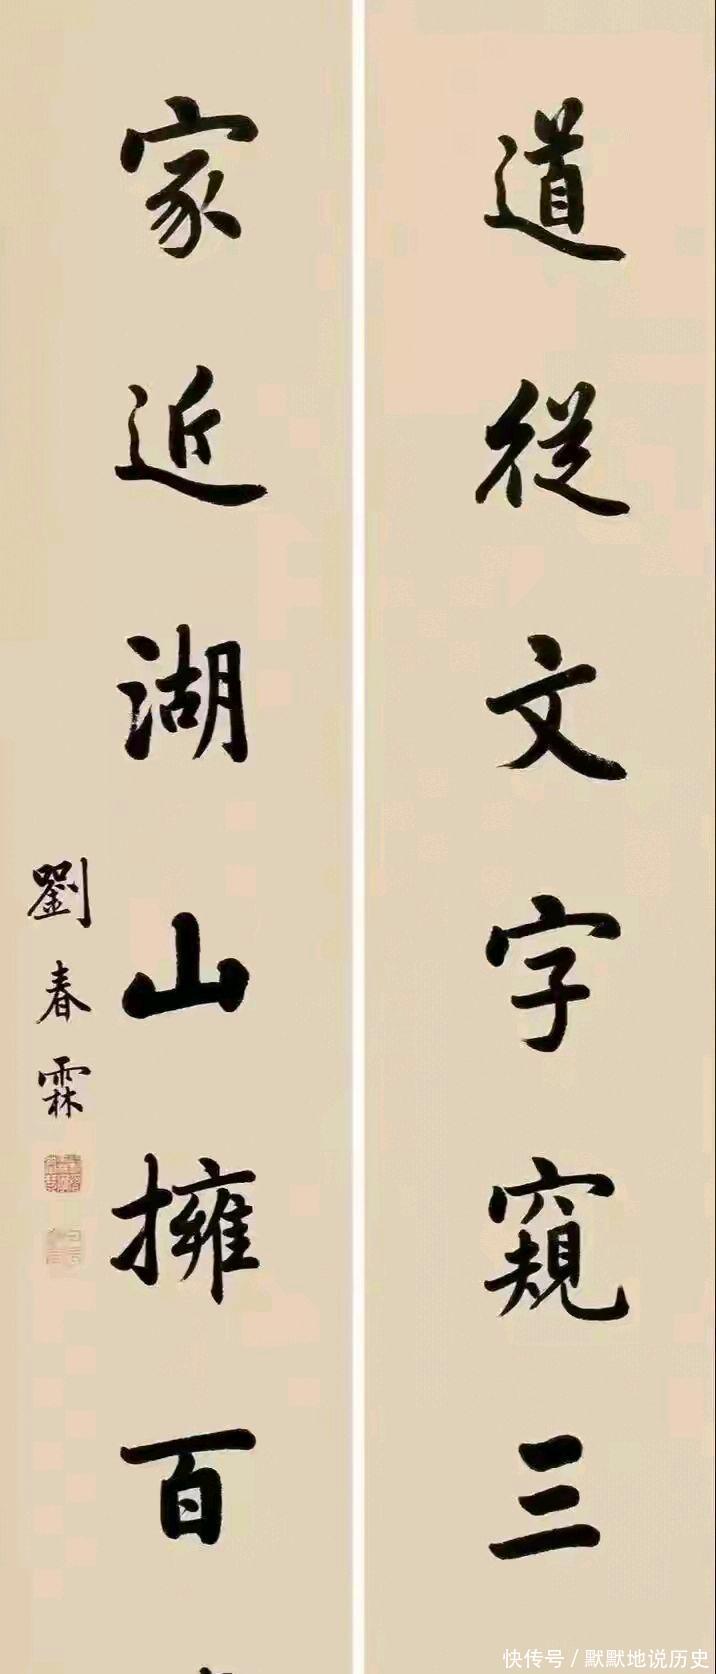 道從文字窺三
家近湖山擁百
劉春霖
快传号 / 默默地说历史